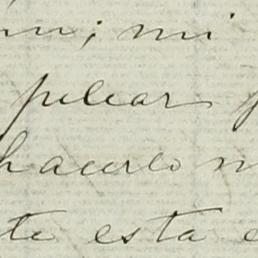 mi
pelear
hacerlo
te esta